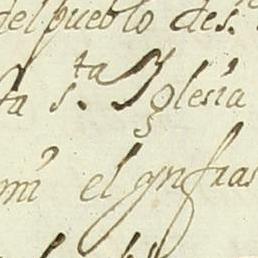 del pueblo de s.
ta s.ta Yglesia
mi el ynfras